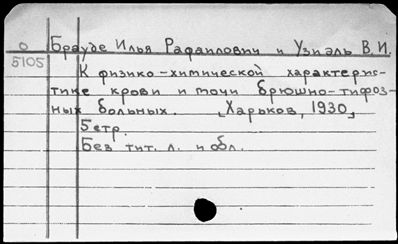 О Брауде Илья Рафаилович и Узиэль В.И.
5105 К физико-химической характерис-
тике крови и мочи брюшно-тифоз-
ных больных. [Харьков, 1930,]
5стр.
Без тит. л. и обл.